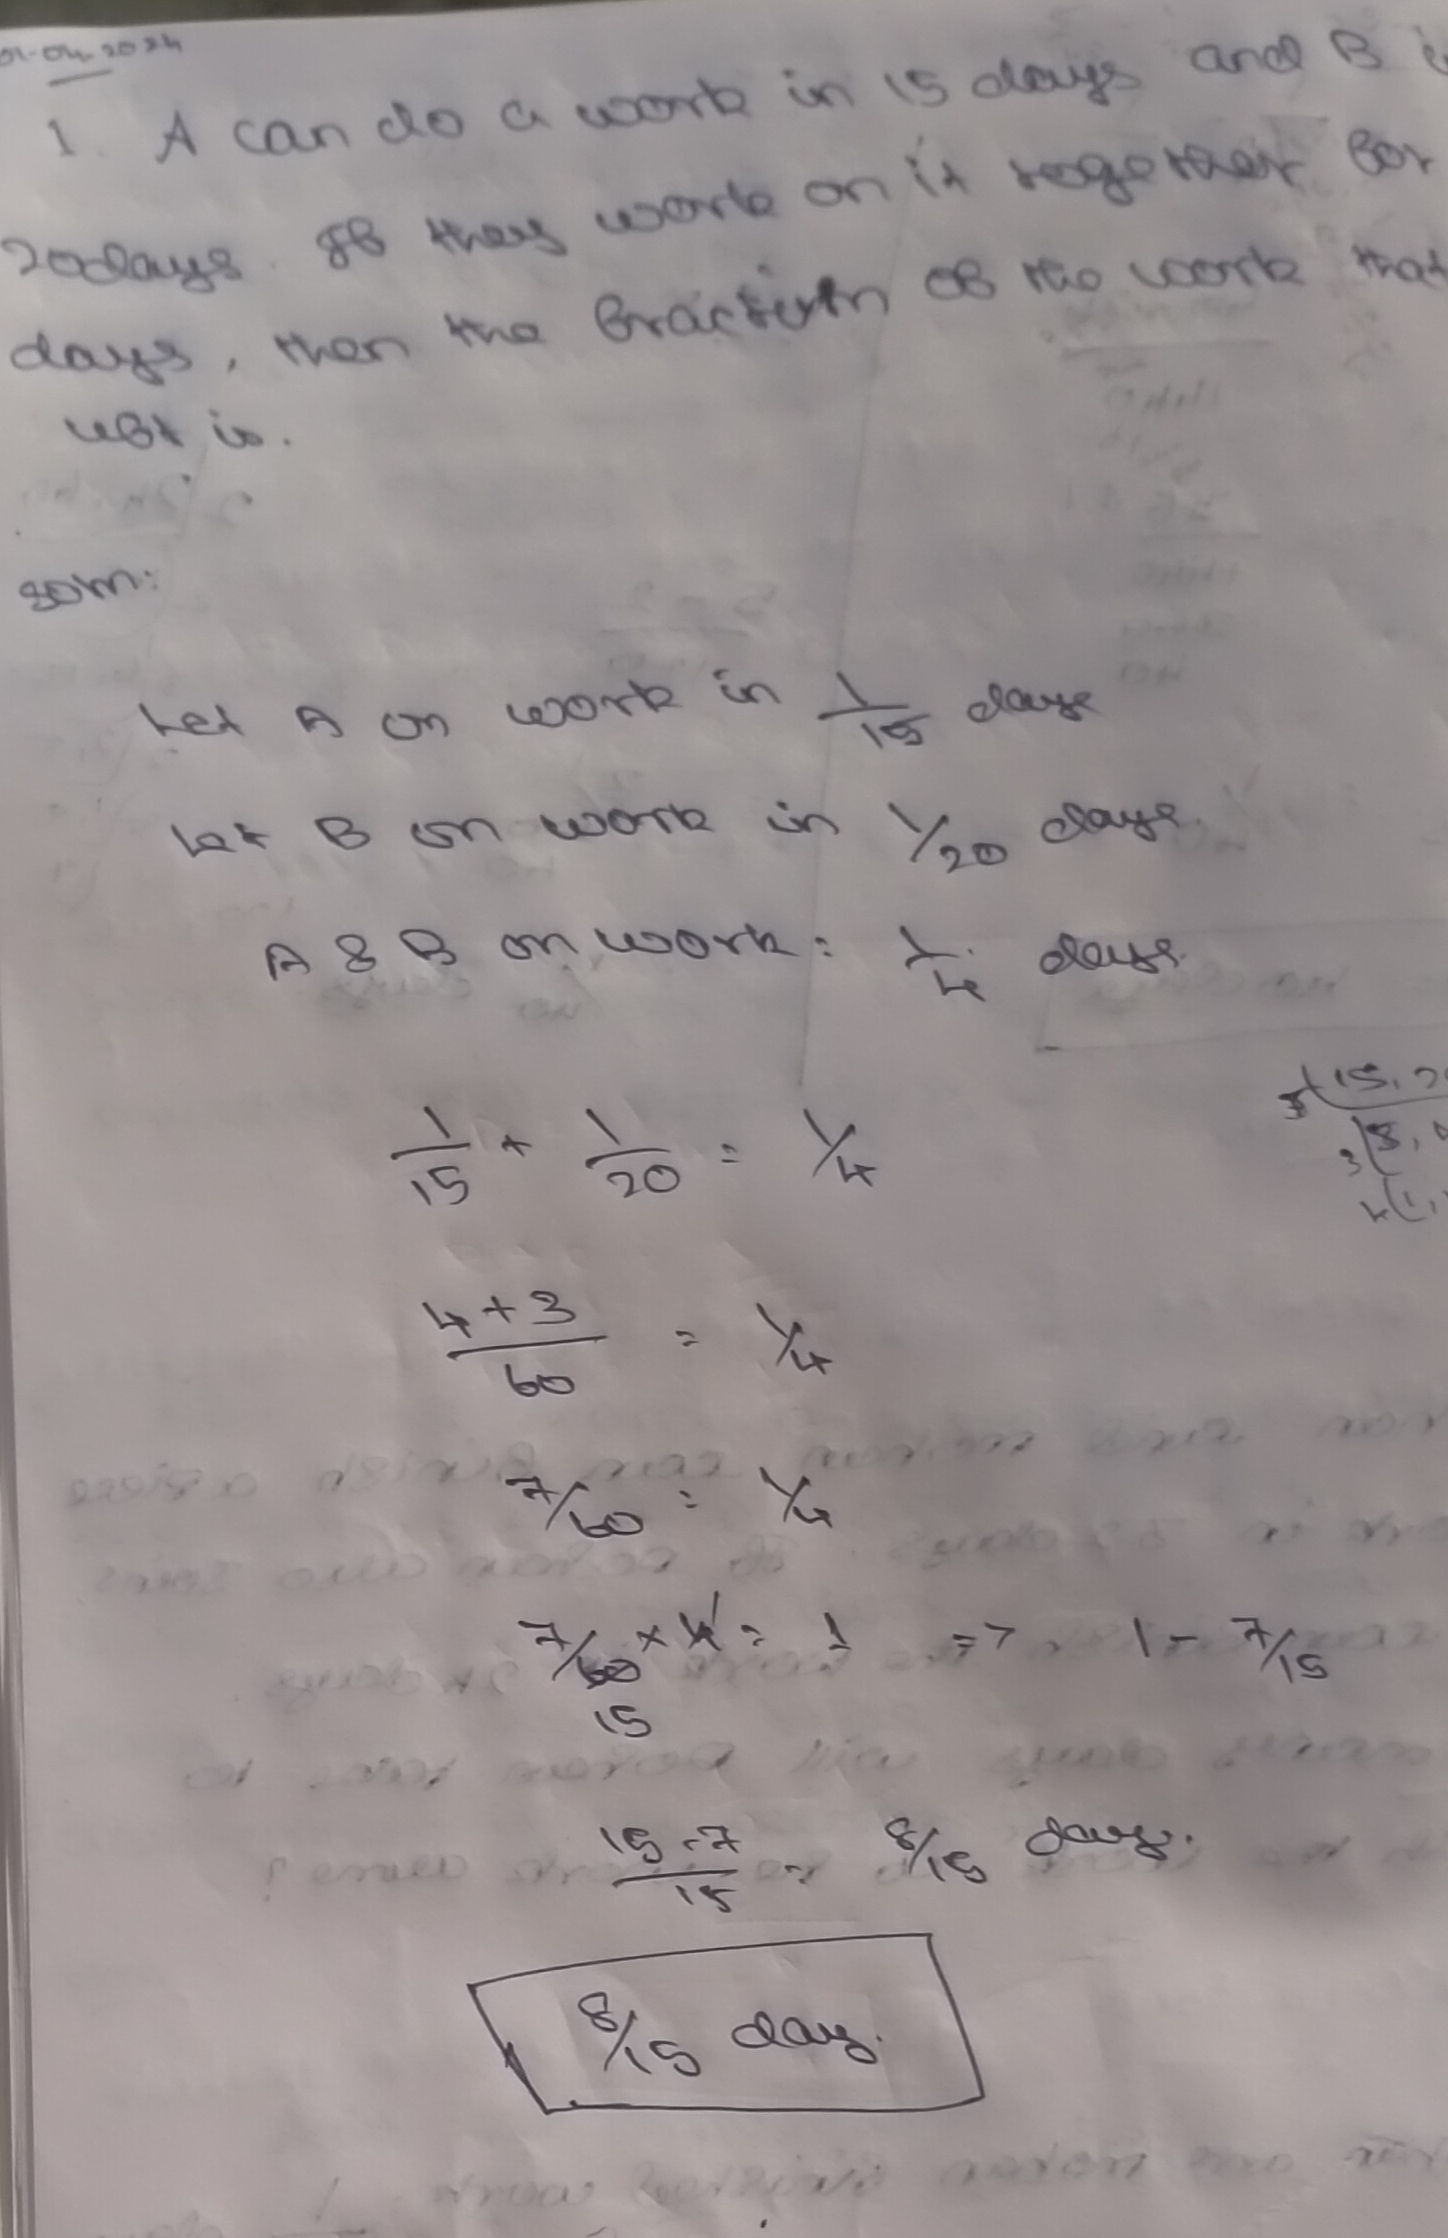 01-04-2024
1. A can do a work in 15 days and B i
20days. If they work on it together for
days, then the fraction of the work that
left is.
soln:
Let A on work in 1/15 days
Let B on work in 1/20 days.
A & B on work = 1/4 days.
1/15 + 1/20 = 1/4
15, 2
4+3/60 = 1/4
7/60 = 1/4
7/60 × 4 = 1 => 1 - 7/15
15
15-7/15 = 8/15 days.
8/15 day.